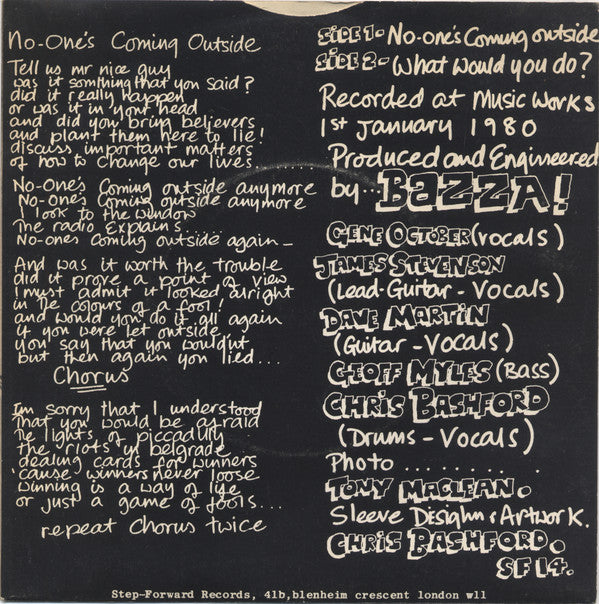 No-One's Coming Outside
Tell us mr nice guy
was it somthing that you said?
did it really happen
or was it in your head
and did you bring believers
and plant them here to lie!
discuss important matters
of how to change our lives......
No-One's Coming outside anymore
No-One's Coming outside anymore
I look to the window
The radio Explains.....
No-ones Coming outside again-
And was it worth the trouble
did it prove a point of view
I must admit it looked alright
in the colours of a fool!
and would you do it all again
if you were let outside
you say that you wouldnt
but then again you lied...
Chorus
Im sorry that I understood
that you would be afraid
the lights of piccadilly
the 'riots' in belgrade
dealing cards for winners
'cause winners never loose
winning is a way of life
or just a game of fools...
repeat Chorus twice
SIDE 1- No-one's Coming outside
SIDE 2- What would you do?
Recorded at Music Works
1st January 1980
Produced and Engineered
by... BAZZA!
GENE OCTOBER (vocals)
JAMES STEVENSON
(Lead-Guitar-Vocals)
DAVE MARTIN
(Guitar-Vocals)
GEOFF MYLES (Bass)
CHRIS BASHFORD
(Drums-Vocals)
Photo........
TONY MACLEAN.
Sleeve Desighn & Artwork.
CHRIS BASHFORD.
SF 14.
Step-Forward Records, 41b,blenheim crescent london w11